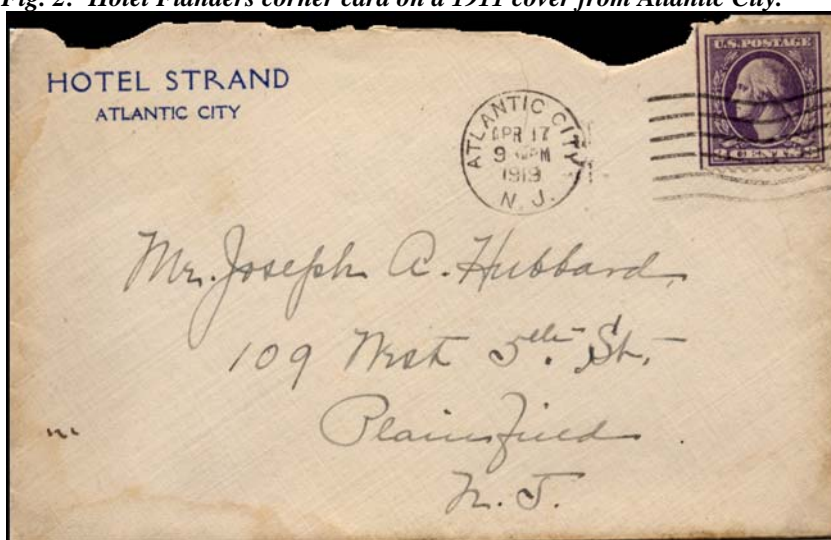 Fig. 2: Hotel Flanders corner card on a 1911 cover from Atlantic City.
HOTEL STRAND
ATLANTIC CITY
U.S. POSTAGE
ATLANTIC CITY
APR 17
9 PM
1919
N. J.
CENTS
Mr. Joseph A. Hubbard,
109 West 5th. St.,
Plainfield
N. J.